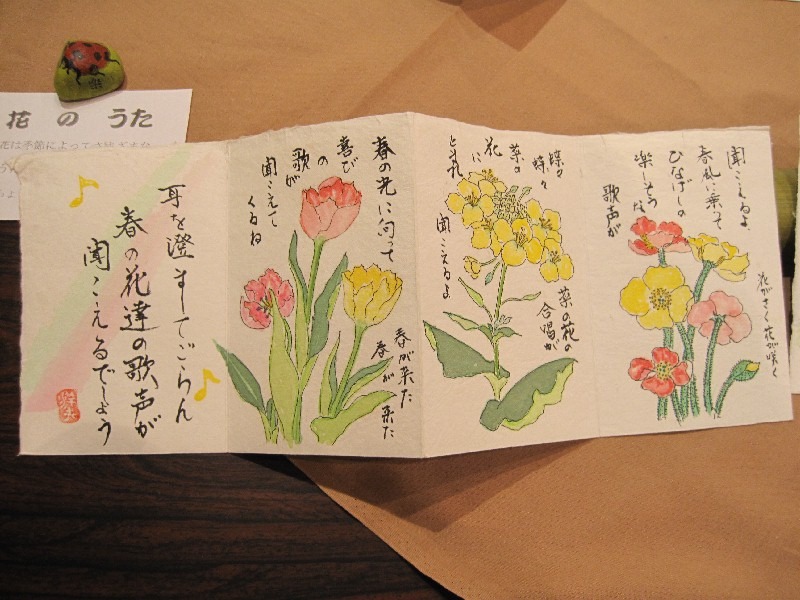 花 の うた
花は季節によって
耳を澄ましてごらん
春の花達の歌声が
聞こえるでしょう
春の光に向って
喜び
の
歌が
聞こえて
くるね
春が来た
春が来た
蝶々
蝶々
菜の
花に
とまれ
菜の花の
合唱が
聞こえるよ
聞こえるよ
春風に乗って
ひなげしの
楽しそうな
歌声が
花がさく花が咲く